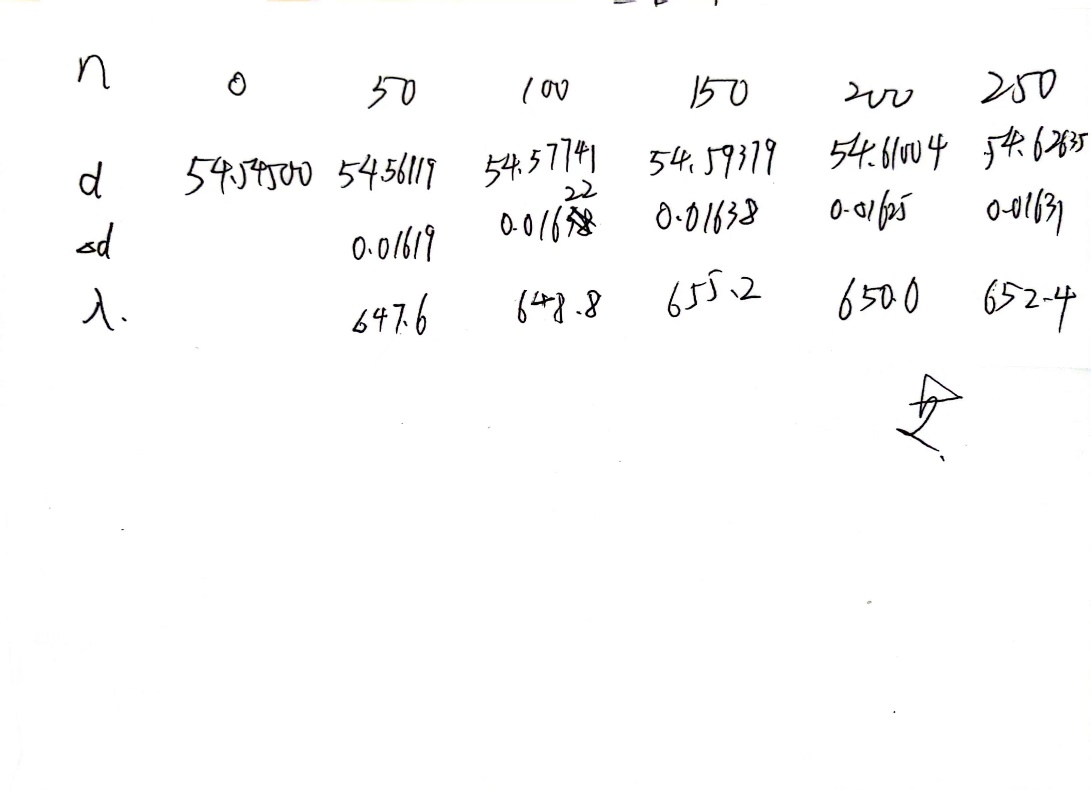 n 0 50 100 150 200 250
d 54.54500 54.56119 54.57741 54.59379 54.61004 54.62635
Δd 0.01619 0.01622 0.01638 0.01625 0.01631
λ. 647.6 648.8 655.2 650.0 652.4